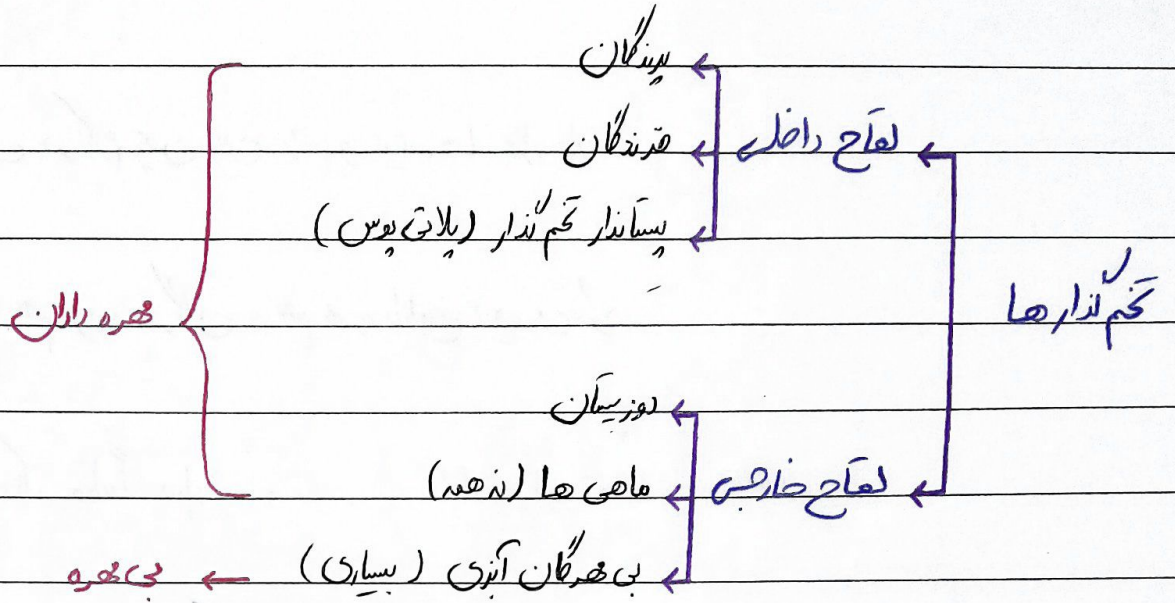 تخم‌گذارها
لقاح داخلی
پرندگان
خزندگان
پستاندار تخم‌گذار (پلاتی پوس)
لقاح خارجی
دوزیستان
ماهی ها (نه همه)
بی مهرگان آبزی (بسیاری)
مهره داران
بی مهره